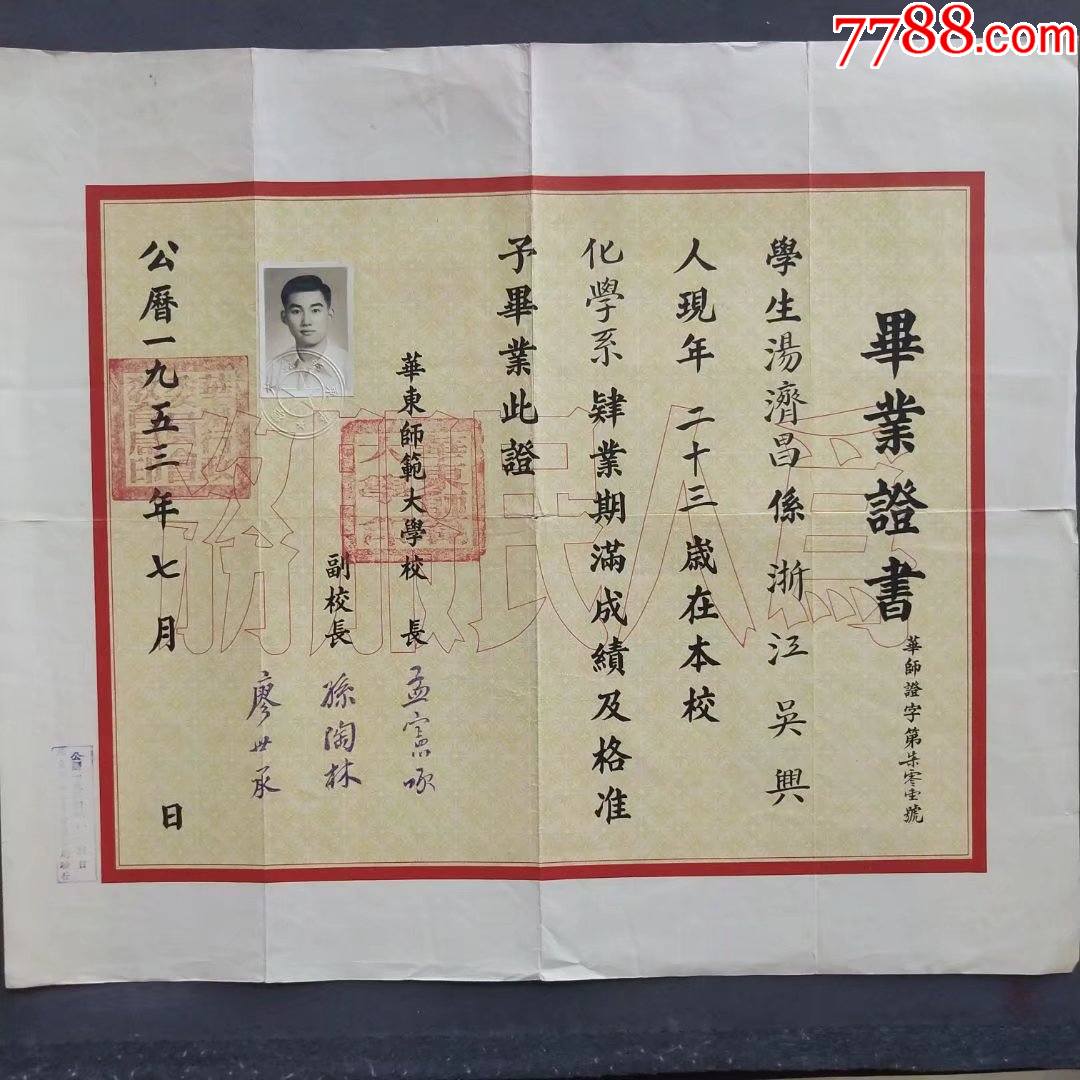 7788.com
畢業證書
華師證字第柒零壹號
學生湯濟昌係浙江吳興
人現年二十三歲在本校
化學系肄業期滿成績及格准
予畢業此證
華東師範大學校長 孟憲承
副校長 孫陶林
廖世承
公曆一九五三年七月 日
為人民服務